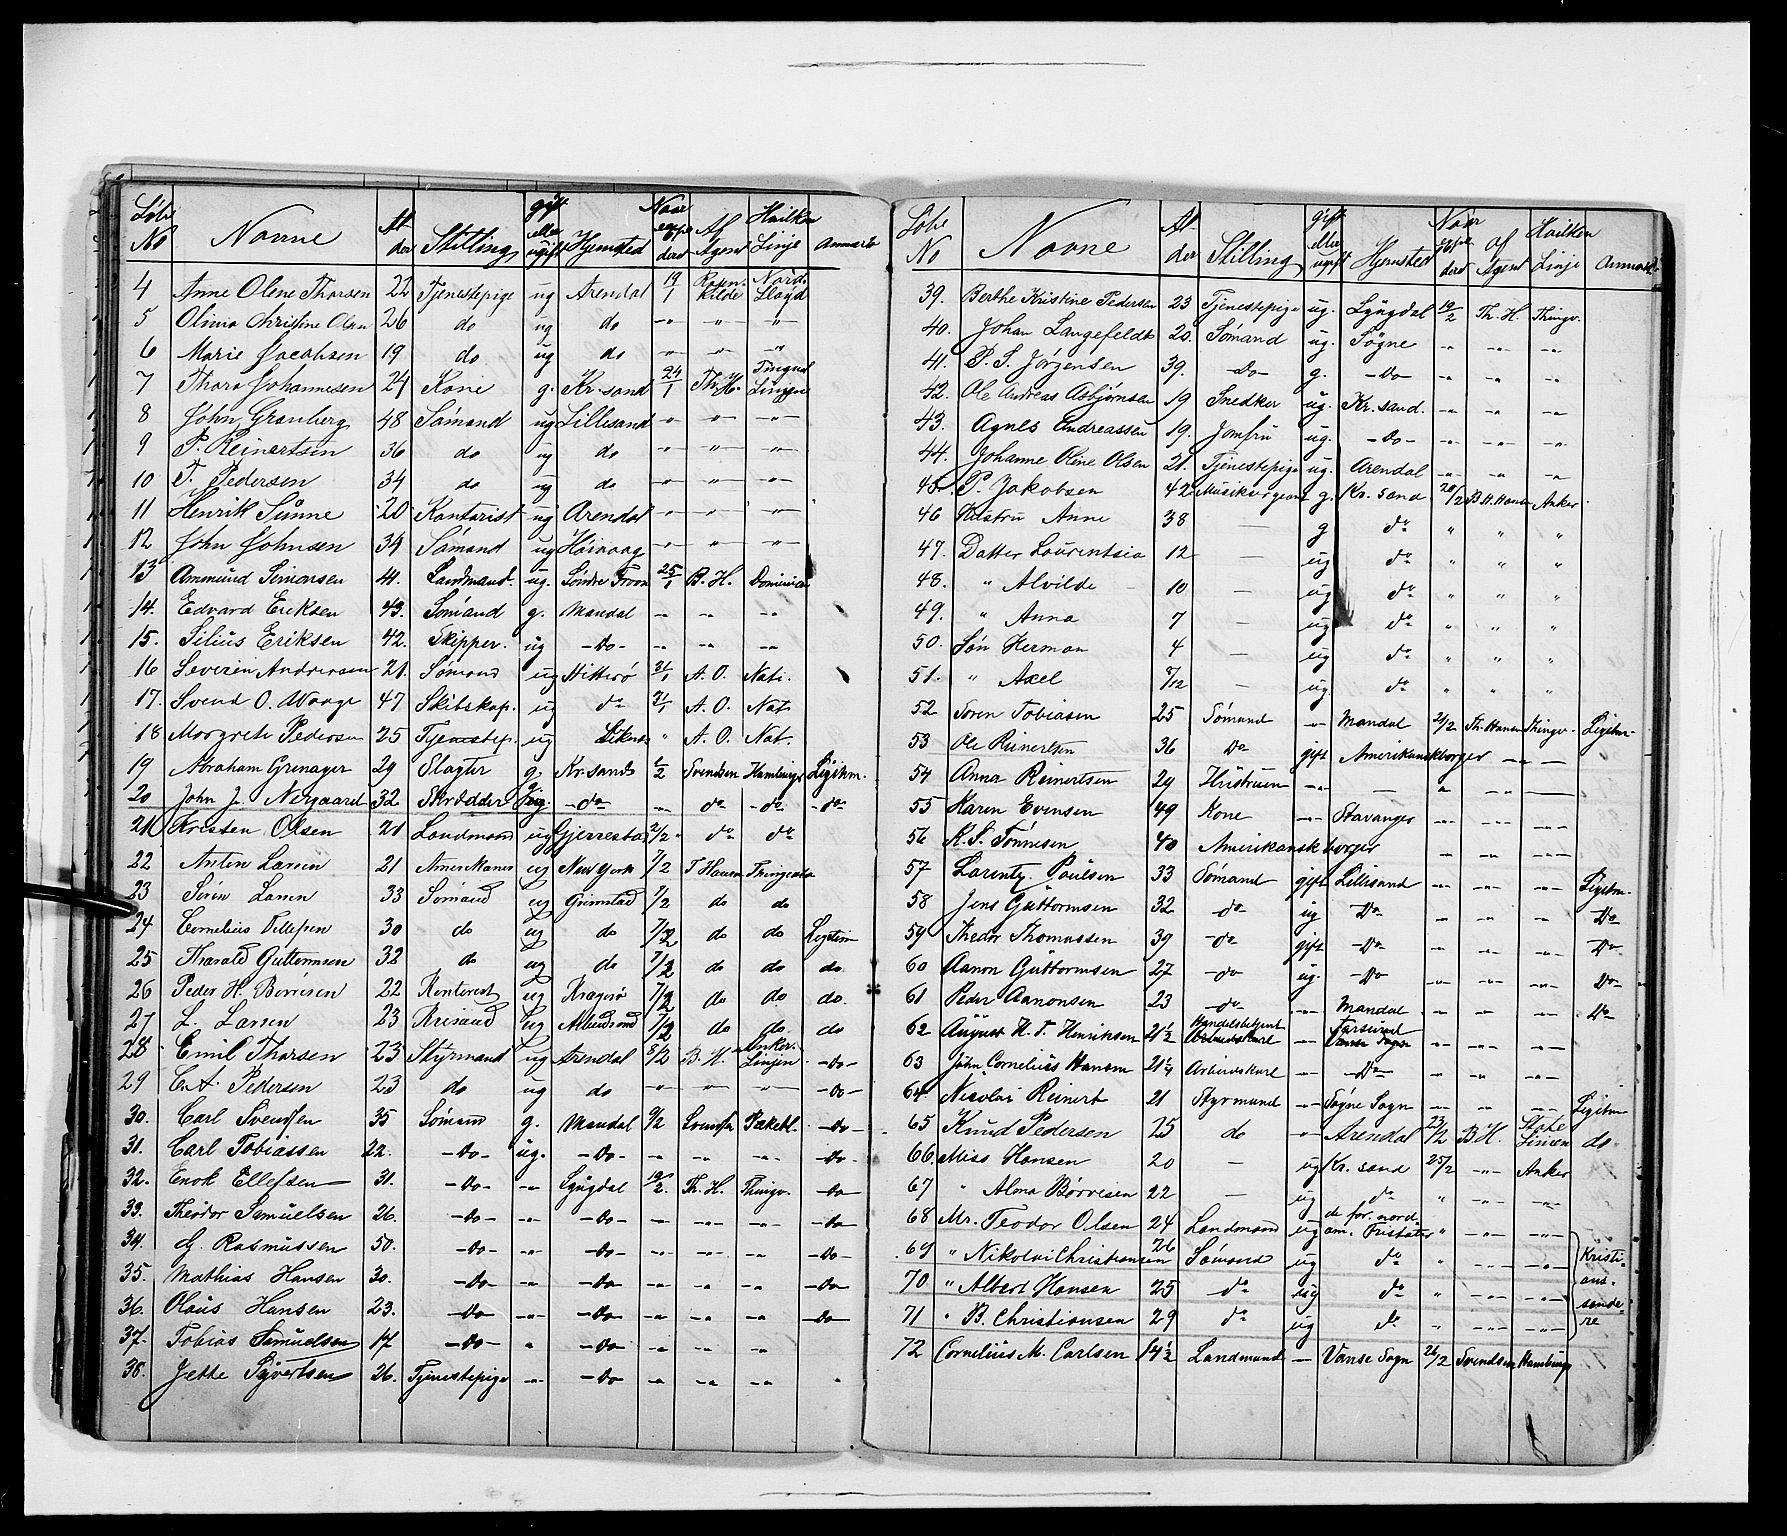 Løbe No | Navne | Alder | Stilling | gift eller ugift | Hjemsted | Naar expederd | Af Agent | Hvilken Linje | Anmærk
4 Anne Olene Thorsen 22 Tjenestepige ug Arendal 19/1 Rosenkilde Nord. Lloyd
5 Olivia Christine Olsen 26 do ug do -"- " -"-
6 Marie Jacobsen 19 do ug do -"- " -"-
7 Thara Johannesen 24 Kone g. Kr.sand 24/1 Th. H. Tingval Linjen
8 John Granberg 48 Sømand ug Lillesand " -"- -"-
9 P. Reinertsen 36 do ug do " -"- -"-
10 T. Pedersen 34 do ug do " " -"-
11 Henrik Sunne 20 Kontorist ug Arendal -"- " -"-
12 John Johnsen 34 Sømand ug Høivaag -"- " -"-
13 Ammund Simonsen 41. Landmand. ug. Søndre 25/1 B. H. Dominion
14. Edvard Eriksen 43. Sømand g. Mandal -"- -"- -"-
15. Silius Eriksen 42. Skipper. ug -Do- -"- -"- -"-
16 Severin Andreasen 21. Sømand ug Hitterø 31/1 A. O. Nati.
17. Svend O. Waage 47 Skibskap. ug do 31/1 A. O. Nat.
18 Margrete Pedersen 25 Tjenestep. ug " A. O. Nat.
19 Abraham Grenager 29 Slagter g. Kr.sand 1/2 Svendsen Hamburge Legitim.
20 John J. Nergaard 32 Skrædder ug. -do- -"- do -do- -do-
21 Kristen Olsen 21 Landmand ug Gjerrestad 2/2 do do
22 Anton Larsen 21 Amerikaner ug New York 7/2 T Hansen Thingvala
23 Søren Larsen 33 Sømand ug Grimstad 7/2 do do
24 Cornelius Tellefsen 30 do ug do 7/2 do do Legitim
25 Harald Guttormsen 32 do ug do 7/2 do do do
26 Peder H. Børresen 22 Kontorist ug Kragerø 7/2 do do. do.
27 L. Larsen 23 ug 7/2 do do. do
28 Emil Thorsen 23 Styrmand ug Arendal 8/2 B. H. Anker-Linjen -do-
29 C. A. Pedersen 23 do ug do " " " -do-
30. Carl Svendsen 35 Sømand g. Mandal 9/2 Svendsen Paketl. -do-
31. Carl Tobiassen 22. -Do- ug. -Do- -"- -"- -"- -Do-
32. Enok Ellefsen 31. -Do- -"- Lyngdal 12/2. Th. H. Thingv. -Do-
33. Theodor Samuelsen 26. -Do- -"- -Do- -"- -"- -"- -Do-
34. G. Rasmussen 50. -Do- -"- -Do- -"- -"- -"- -Do-
35. Mathias Hansen 30. -Do- " -Do- -"- -"- -"- -Do-
36. Olaus Hansen 23. -Do- -"- -Do- -"- -"- -"- -Do-
37. Tobias Samuelsen 17 -Do- " -Do- -"- -"- -"-
38. Jette Syvertsen 26. Tjenestepige -"- -Do- -"- -"- -"- "
Løbe No | Navne | Alder | Stilling | gift eller ugift | Hjemsted | Naar Expederd | af Agent | Hvilken Linje | Anmærk
39. Berthe Kristine Pedersen 23 Tjenestepige ug. Lyngdal 12/2 Th. H. Thingv.
40. Johan Langefeldt 20. Sømand ug. Søgne -"- -"- -"-
41. P. S. Jørgensen 39. -Do- g. -Do- -"- -"- -"-
42. Ole Andreas Asbjørnsen 19 Snedker ug. Kr.sand. -"- -"- -"-
43. Agnes Andreassen 19. Jomfru ug. -Do- -"- -"- -"-
44. Johanne Oline Olsen 21. Tjenestepige ug. Arendal -"- -"- -"-
45. P. Jakobsen 42 Musiksergeant g. Kr.sand 20/2 B.H. Hansen Anker
46 Hustru Anne 38 — g do " " "
47. Datter Laurentsia 12 — ug do " " "
48. " Alvilde 10 — ug do " " "
49. " Anna 7 — ug do " " "
50. Søn Herman 4 — ug do " " "
51. " Axel 7/12 — ug do " " "
52 Søren Tobiasen 25 Sømand -"- Mandal 21/2 Th. Hansen Thingv. Legitm.
53 Ole Reinertsen 36 Do gift Amerikanskborger -"- -"-
54 Anna Reinertsen 29 Hustruen -"- — " -"- —
55 Karen Evensen 49 Kone -"- Stavanger -"- -"- -"-
56 K. S. Tønnesen 40 Amerikansk borger -"- -"- -"-
57 Larentz Poulsen 33 Sømand gift Lillesand -"- -"- -"- Legitm.
58 Jens Guttormsen 32 -do- ug -Do- -"- -"- -"- Do
59 Thedor Thomassen 39 -do- gift -Do- -"- -"- -"- -Do-
60 Aanon Guttormsen 27 -do- ug. -Do -"- -"- -"- Do
61 Peder Aanonsen 23 -do- -"- Mandal -"- -"- -"- Do
62 August H. T. Henriksen 21½ Handelsbetjent -"- Farsund -"- -"- -"-
63 John Cornelius Hansen 21¼ Arbeidskarl -"- -Do- -"- -"- -"-
64 Nicolai Reinert 21 Styrmand -"- Søgne Sogn -"- -"- -"- Legitm
65 Knud Pedersen 25 do " Arendal 23/2 B H. State Linien do
66. Miss Hansen 20 — ug Kr.sand 25/2 -"- Anker
67 " Alma Børresen 22 — ug do " -"- -"-
68 Mr. Teodor Olsen 24 Landmand ug de for. nord am. Fristater " -"- -"-
69 " Nikolai Christiansen 26 Sømand ug do " -"- -"- Kristi-
70 " Albert Hansen 25 do ug do " -"- -"- ans-
71 " B. Christiansen 29 do ug do " -"- -"- sande-re
72 Cornelius M. Carlsen 14½ Landmand — Vanse Sogn 26/2 Svendsen Hamburg